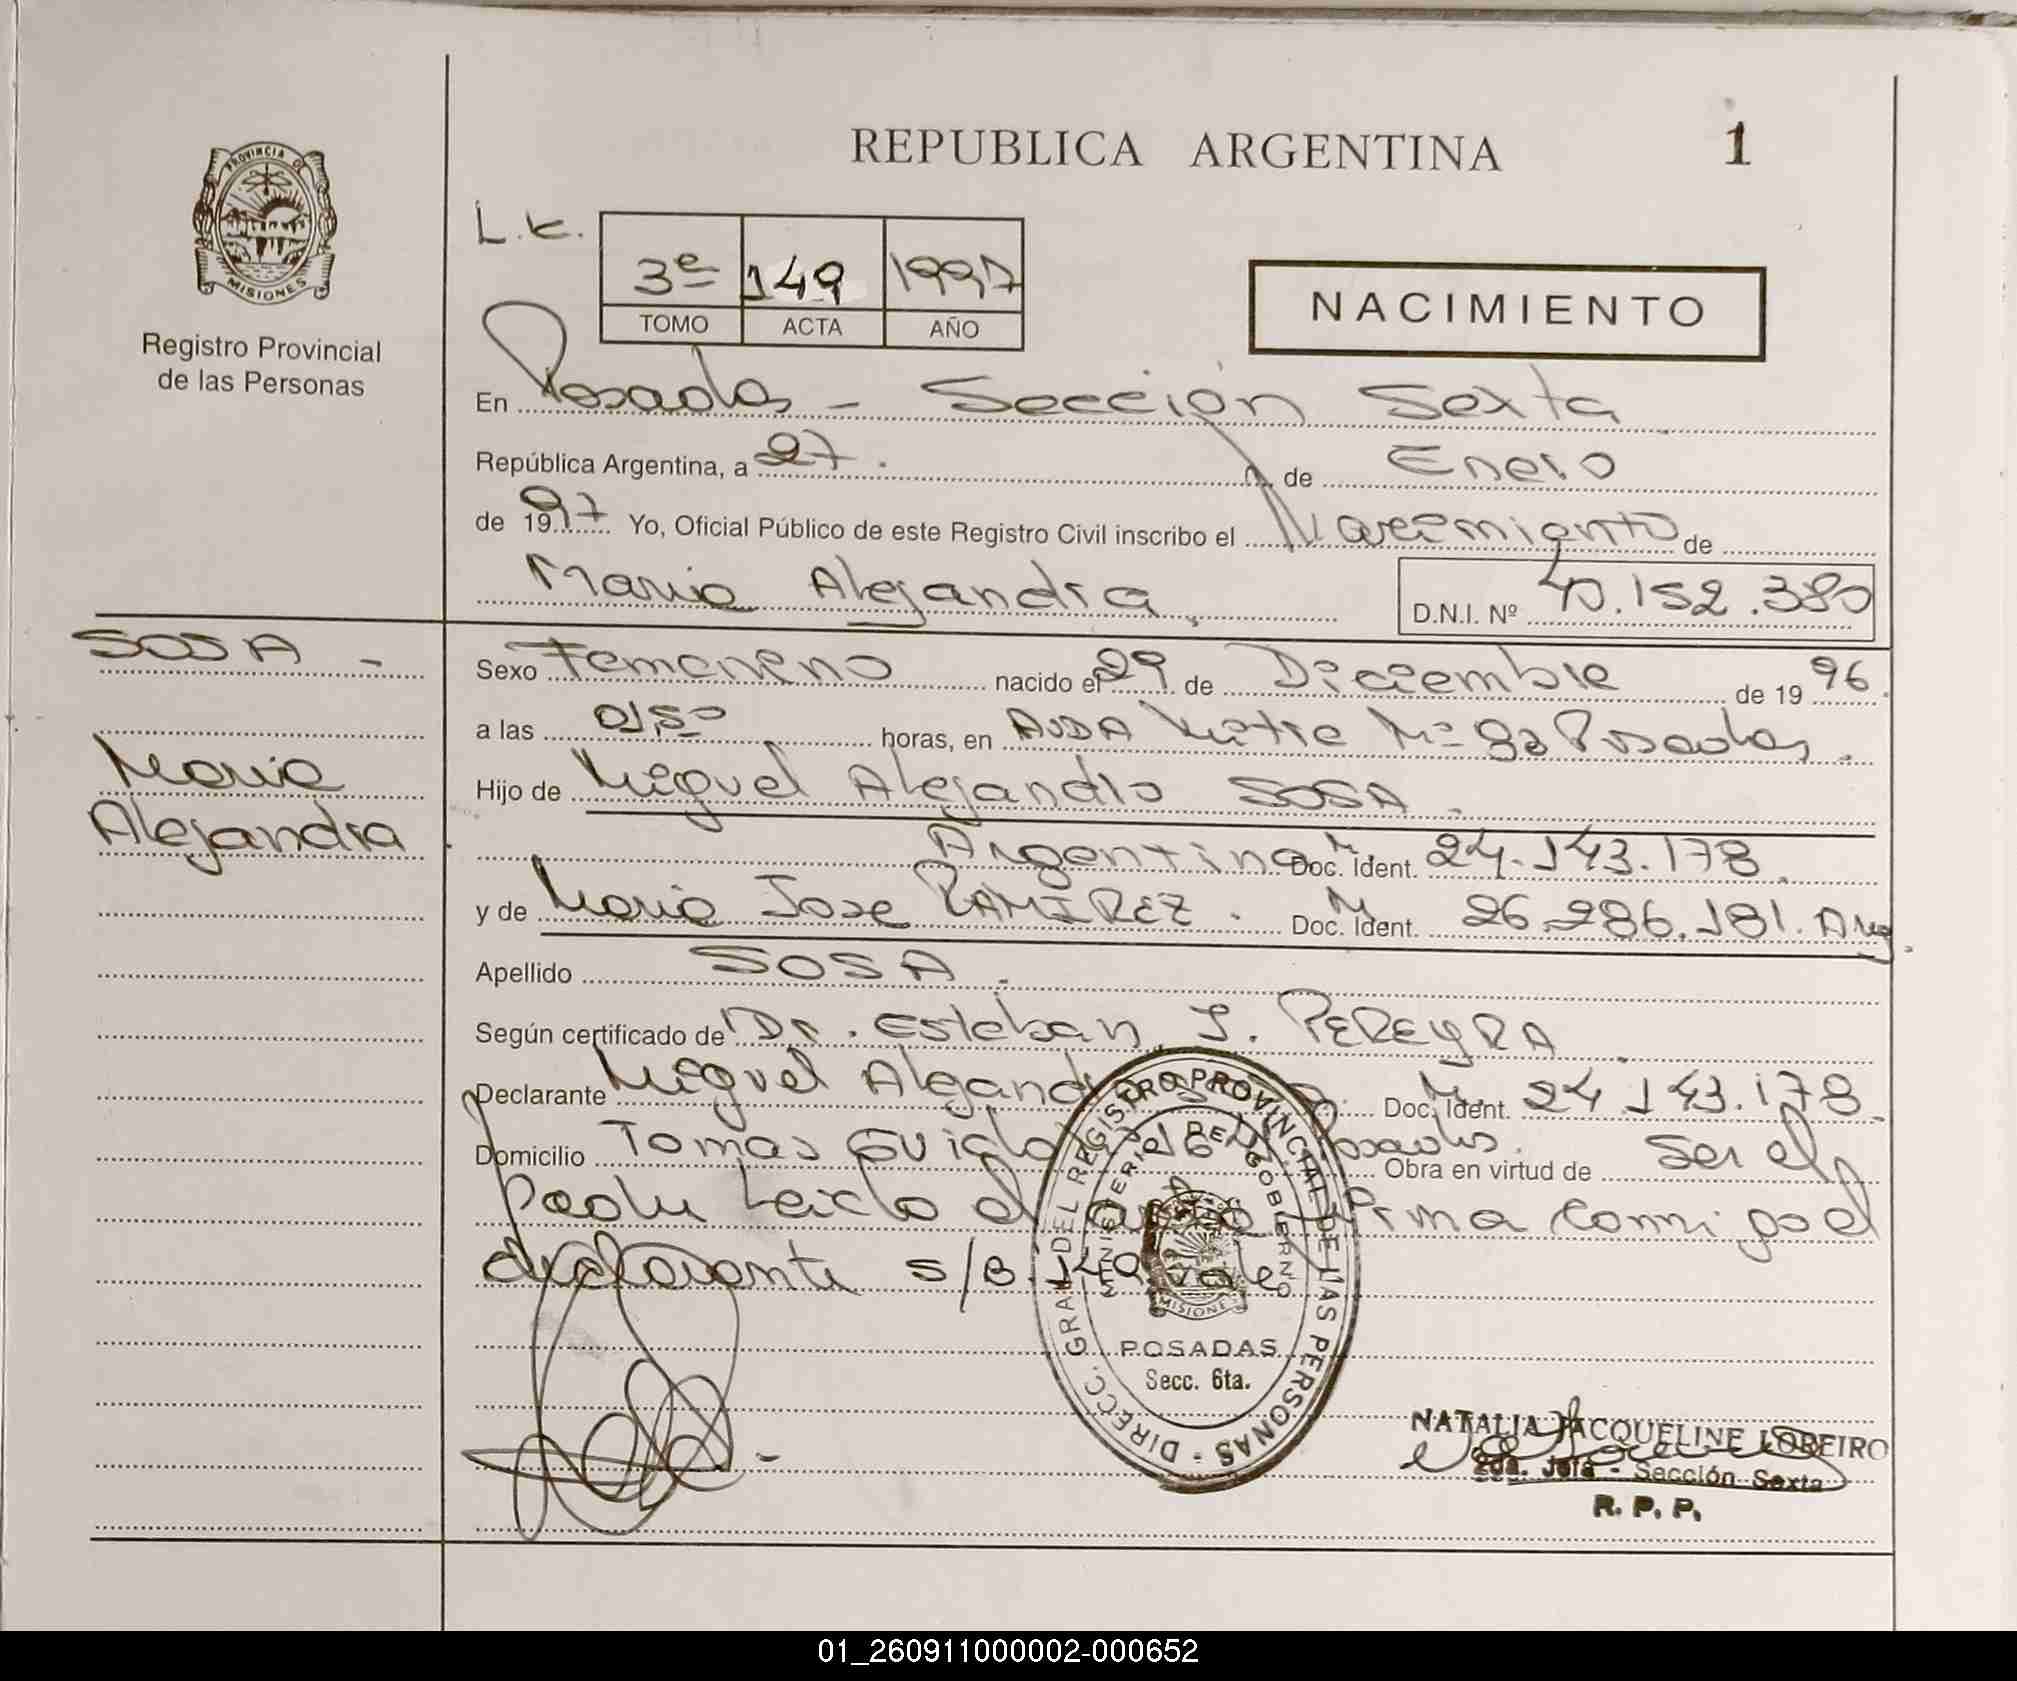 REPUBLICA ARGENTINA
1
PROVINCIA DE
MISIONES
Registro Provincial
de las Personas
L.K.
3º 149 1997
TOMO ACTA AÑO
NACIMIENTO
En Posadas - Sección Sexta
República Argentina, a 27. de Enero
de 1997 Yo, Oficial Público de este Registro Civil inscribo el Nacimiento de
Maria Alejandra
D.N.I. Nº 40.152.380
SOSA -
Maria
Alejandra
Sexo Femenino nacido el 29 de Diciembre de 1996.
a las 01,50 horas, en AVDA Mitre Nº 92 Posadas.
Hijo de Miguel Alejandro SOSA.
Argentina M Doc. Ident. 24.143.178.
y de Maria Jose RAMIREZ. M Doc. Ident. 26.286.181. Arg.
Apellido SOSA.
Según certificado de Dr. Esteban J. PEREYRA.
Declarante Miguel Alejandro Doc. Ident. 24.143.178.
Domicilio Tomas Guido Posadas. Obra en virtud de ser el
padre Leido el acta firma conmigo el
declarante s/B. 149 vale
DIRECC. GRAL DEL REGISTRO PROVINCIAL DE LAS PERSONAS -
MINISTERIO DE GOBIERNO
MISIONES
POSADAS
Secc. 6ta.
NATALIA JACQUELINE LOREIRO
2da. Jefa - Sección Sexta
R. P. P.
01_260911000002-000652